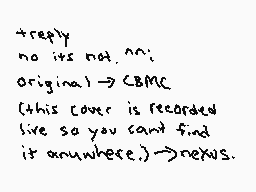 +reply
no its not. ^^;
original → CBMC
(this cover is recorded
live so you cant find
it anywhere.) → nexus.